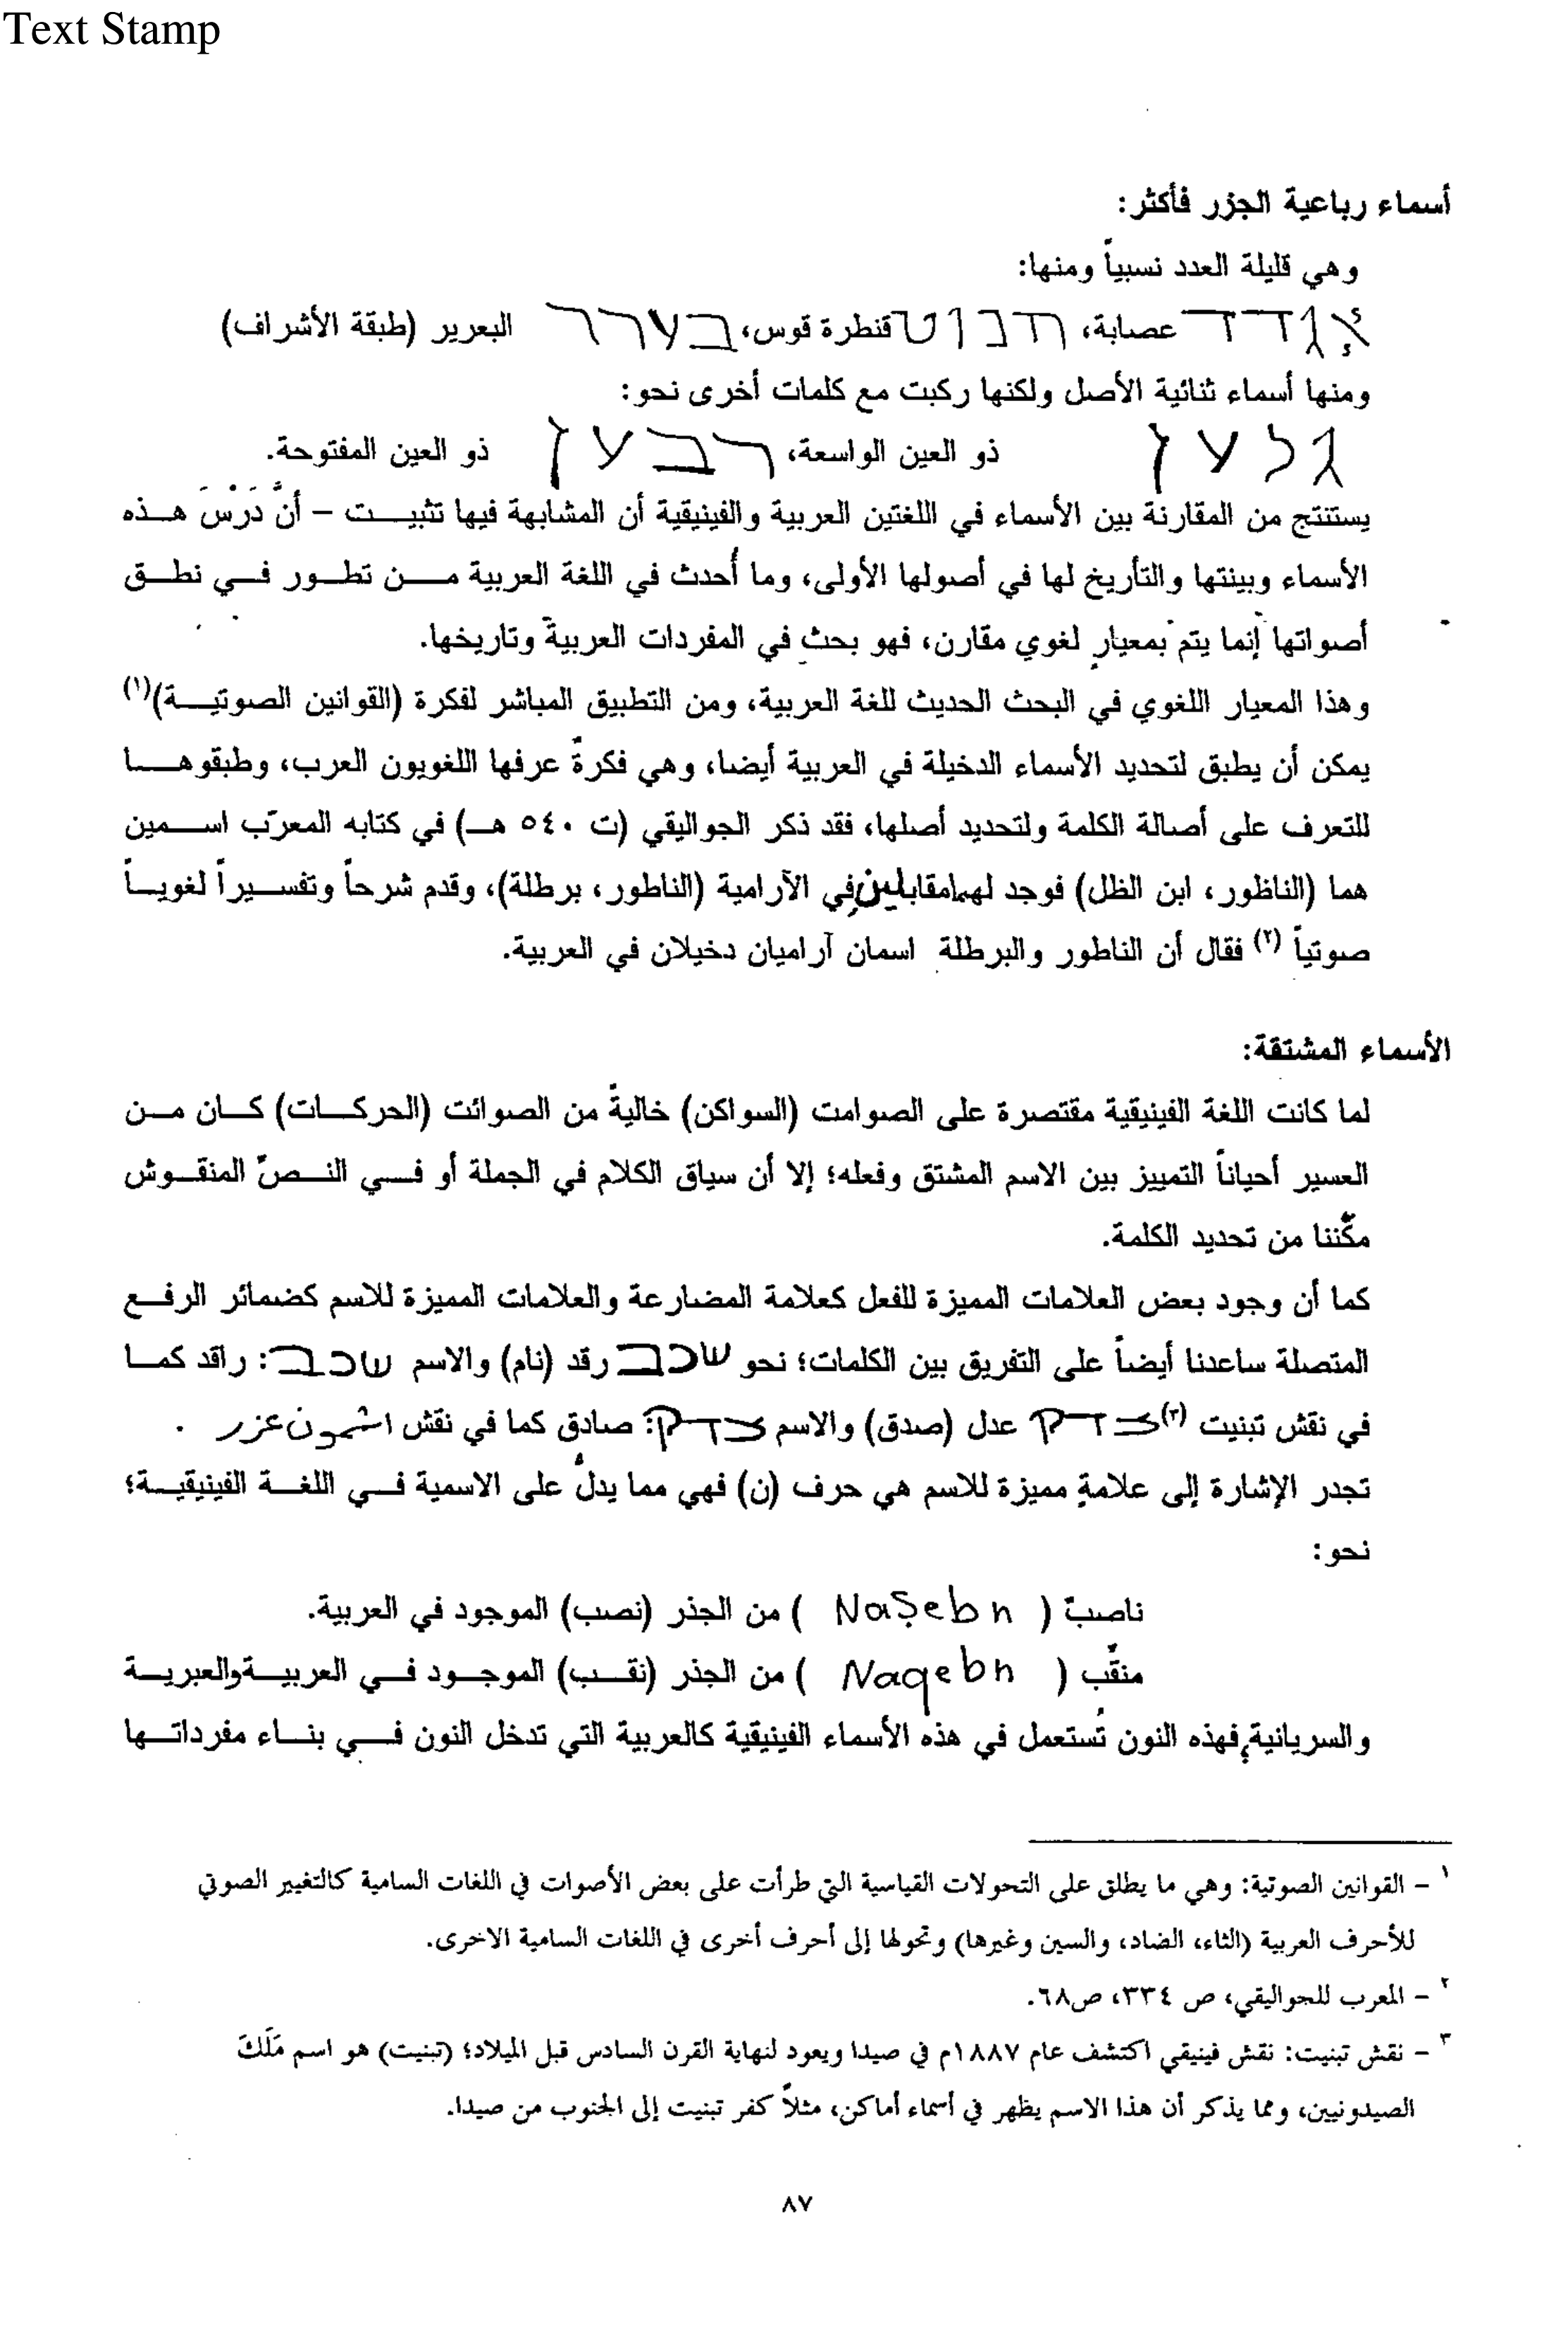 Text Stamp
أسماء رباعية الجزر فأكثر:
وهي قليلة العدد نسبياً ومنها:
עצابة، قنطرة قوس، בערר البعرير (طبقة الأشراف)
ومنها أسماء ثنائية الأصل ولكنها ركبت مع كلمات أخرى نحو:
ذو العين الواسعة، רבען ذو العين المفتوحة.
يستنتج من المقارنة بين الأسماء في اللغتين العربية والفينيقية أن المشابهة فيها تثبيت – أنَّ دَرْسَ هذه
الأسماء وبينتها والتأريخ لها في أصولها الأولى، وما أُحدث في اللغة العربية من تطور في نطق
أصواتها إنما يتم بمعيار لغوي مقارن، فهو بحث في المفردات العربية وتاريخها.
وهذا المعيار اللغوي في البحث الحديث للغة العربية، ومن التطبيق المباشر لفكرة (القوانين الصوتية)(١)
يمكن أن يطبق لتحديد الأسماء الدخيلة في العربية أيضا، وهي فكرةٌ عرفها اللغويون العرب، وطبقوها
للتعرف على أصالة الكلمة ولتحديد أصلها، فقد ذكر الجواليقي (ت ٥٤٠ هـ) في كتابه المعرّب اسمين
هما (الناظور، ابن الظل) فوجد لهما مقابلين في الآرامية (الناطور، برطلة)، وقدم شرحاً وتفسيراً لغوياً
صوتياً (٢) فقال أن الناطور والبرطلة اسمان آراميان دخيلان في العربية.
الأسماء المشتقة:
لما كانت اللغة الفينيقية مقتصرة على الصوامت (السواكن) خاليةً من الصوائت (الحركات) كان من
العسير أحياناً التمييز بين الاسم المشتق وفعله؛ إلا أن سياق الكلام في الجملة أو في النصّ المنقوش
مكّننا من تحديد الكلمة.
كما أن وجود بعض العلامات المميزة للفعل كعلامة المضارعة والعلامات المميزة للاسم كضمائر الرفع
المتصلة ساعدنا أيضاً على التفريق بين الكلمات؛ نحو שכב رقد (نام) والاسم שכב: راقد كما
في نقش تبنيت (٣) צדק عدل (صدق) والاسم צדק: صادق كما في نقش اشمون عزر .
تجدر الإشارة إلى علامةٍ مميزة للاسم هي حرف (ن) فهي مما يدلُّ على الاسمية في اللغة الفينيقية؛
نحو:
ناصبٌ ( Naṣebn ) من الجذر (نصب) الموجود في العربية.
منقّب ( Naqebn ) من الجذر (نقب) الموجود في العربية والعبرية
والسريانية، فهذه النون تُستعمل في هذه الأسماء الفينيقية كالعربية التي تدخل النون في بناء مفرداتها
١ – القوانين الصوتية: وهي ما يطلق على التحولات القياسية التي طرأت على بعض الأصوات في اللغات السامية كالتغيير الصوتي
للأحرف العربية (الثاء، الضاد، والسين وغيرها) وتحولها إلى أحرف أخرى في اللغات السامية الاخرى.
٢ – المعرب للجواليقي، ص ٣٣٤، ص٦٨.
٣ – نقش تبنيت: نقش فينيقي اكتشف عام ١٨٨٧م في صيدا ويعود لنهاية القرن السادس قبل الميلاد؛ (تبنيت) هو اسم مَلَكَ
الصيدونيين، ومما يذكر أن هذا الاسم يظهر في أسماء أماكن، مثلاً كفر تبنيت إلى الجنوب من صيدا.
٨٧